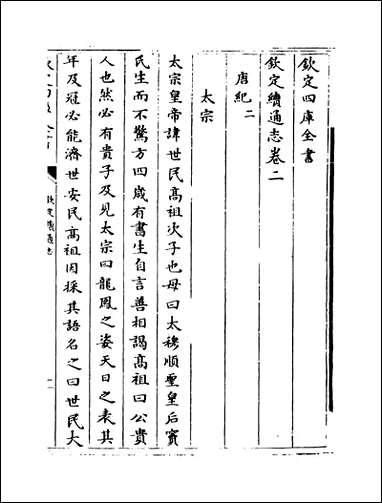 欽定四庫全書
欽定續通志卷二
唐紀二
太宗
太宗皇帝諱世民高祖次子也母曰太穆順聖皇后竇
氏生而不驚方四歲有書生自言善相謁高祖曰公貴
人也然必有貴子及見太宗曰龍鳳之姿天日之表其
年及冠必能濟世安民高祖因採其語名之曰世民大
欽定續通志